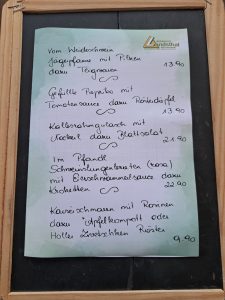 Vom Weideschwein
Jägerpfanne mit Pilzen
dazu Teigwaren 13.90
Gefüllte Paprika mit
Tomatensauce dazu Rösterdäpfel
13.90
Kalbsrahmgulasch mit
Nockerl dazu Blattsalat
21.90
Im Pfandl
Schweinslungenbraten (rosa)
mit Eierschwammerlsauce dazu
Kroketten 22.90
Kaiserschmarrn mit Rosinen
dazu Apfelkompott oder
Holler Zwetschken Röster
9.90